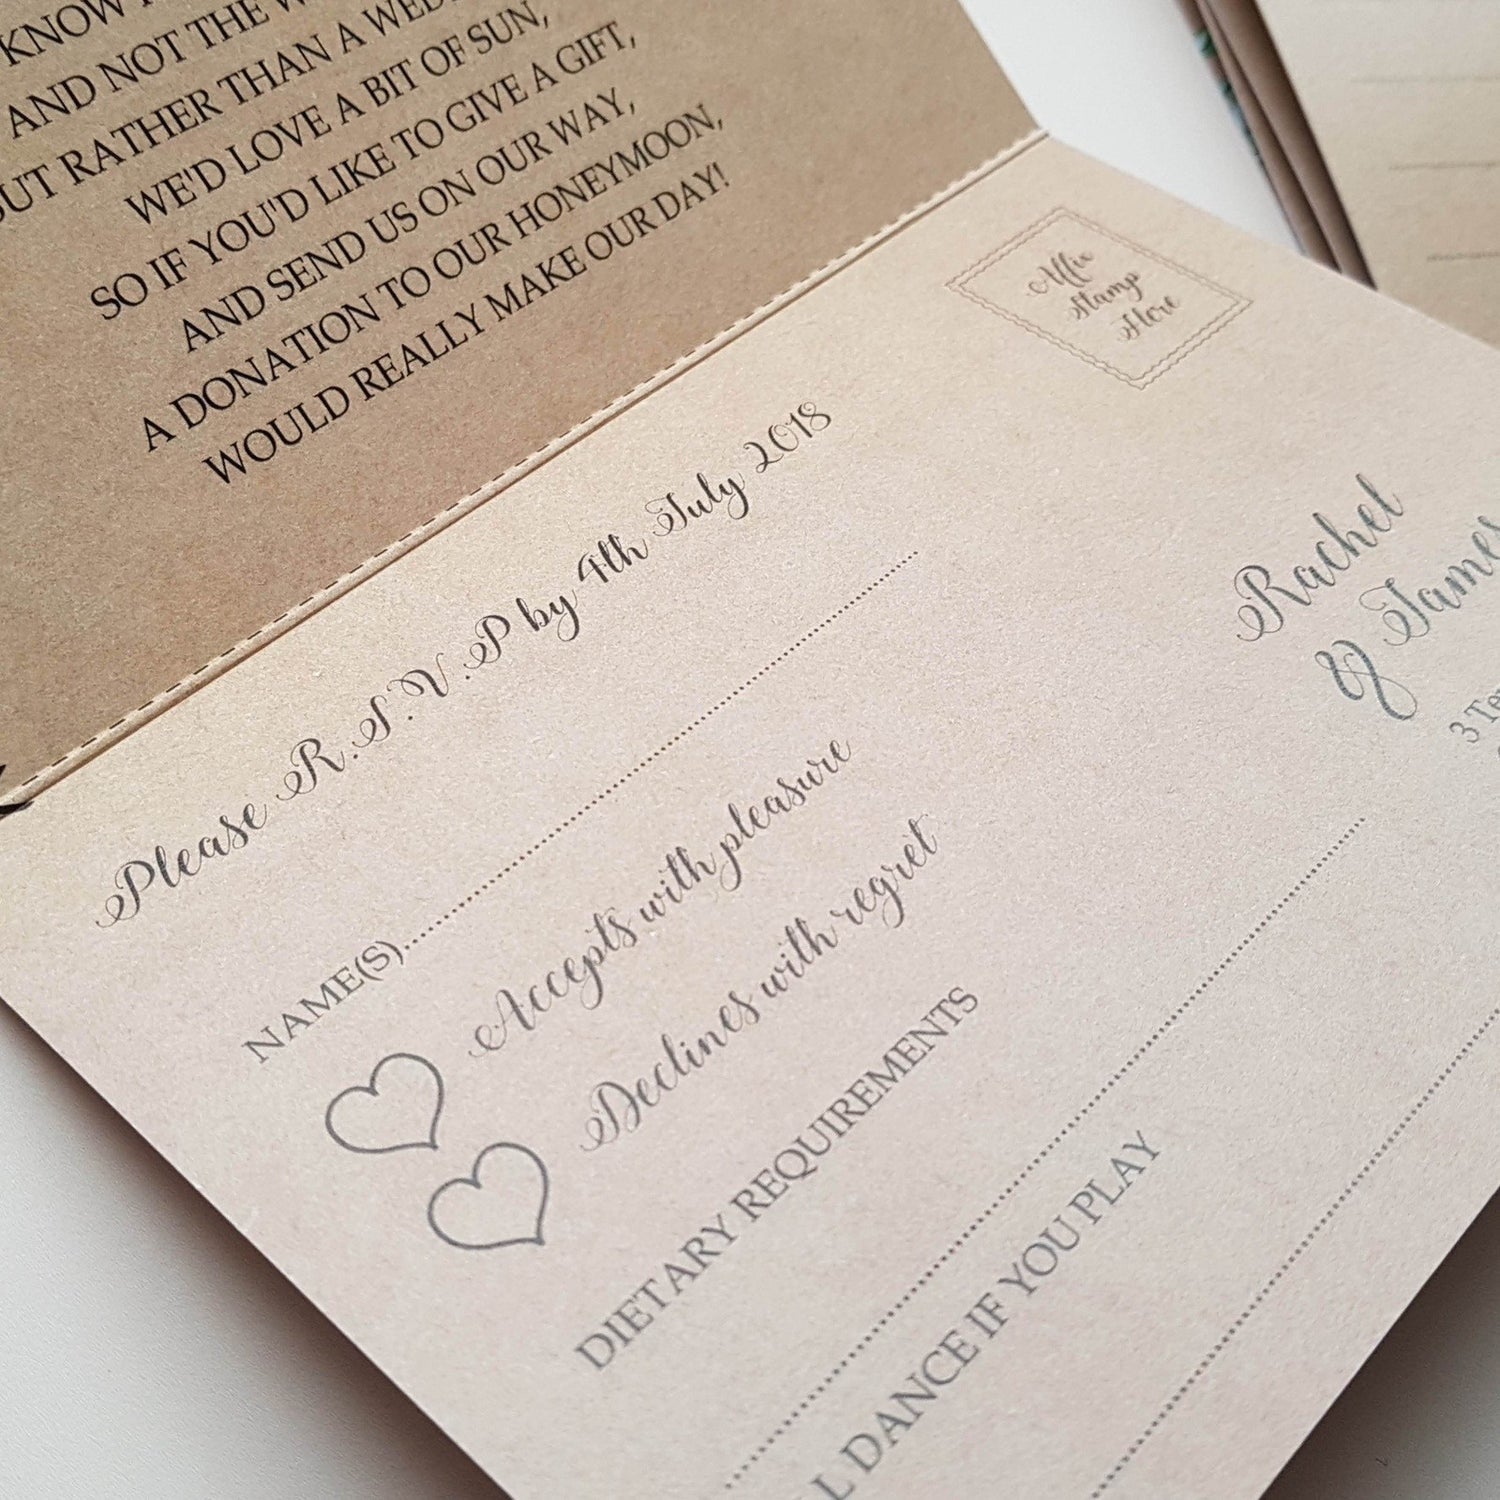 KNOW
AND NOT THE
BUT RATHER THAN A
WE'D LOVE A BIT OF SUN,
SO IF YOU'D LIKE TO GIVE A GIFT,
AND SEND US ON OUR WAY,
A DONATION TO OUR HONEYMOON,
WOULD REALLY MAKE OUR DAY!
Affix
Stamp
Here
Please R.S.V.P by 4th July 2018
NAME(S)
Accepts with pleasure
Declines with regret
DIETARY REQUIREMENTS
DANCE IF YOU PLAY
Rachel
& James
3